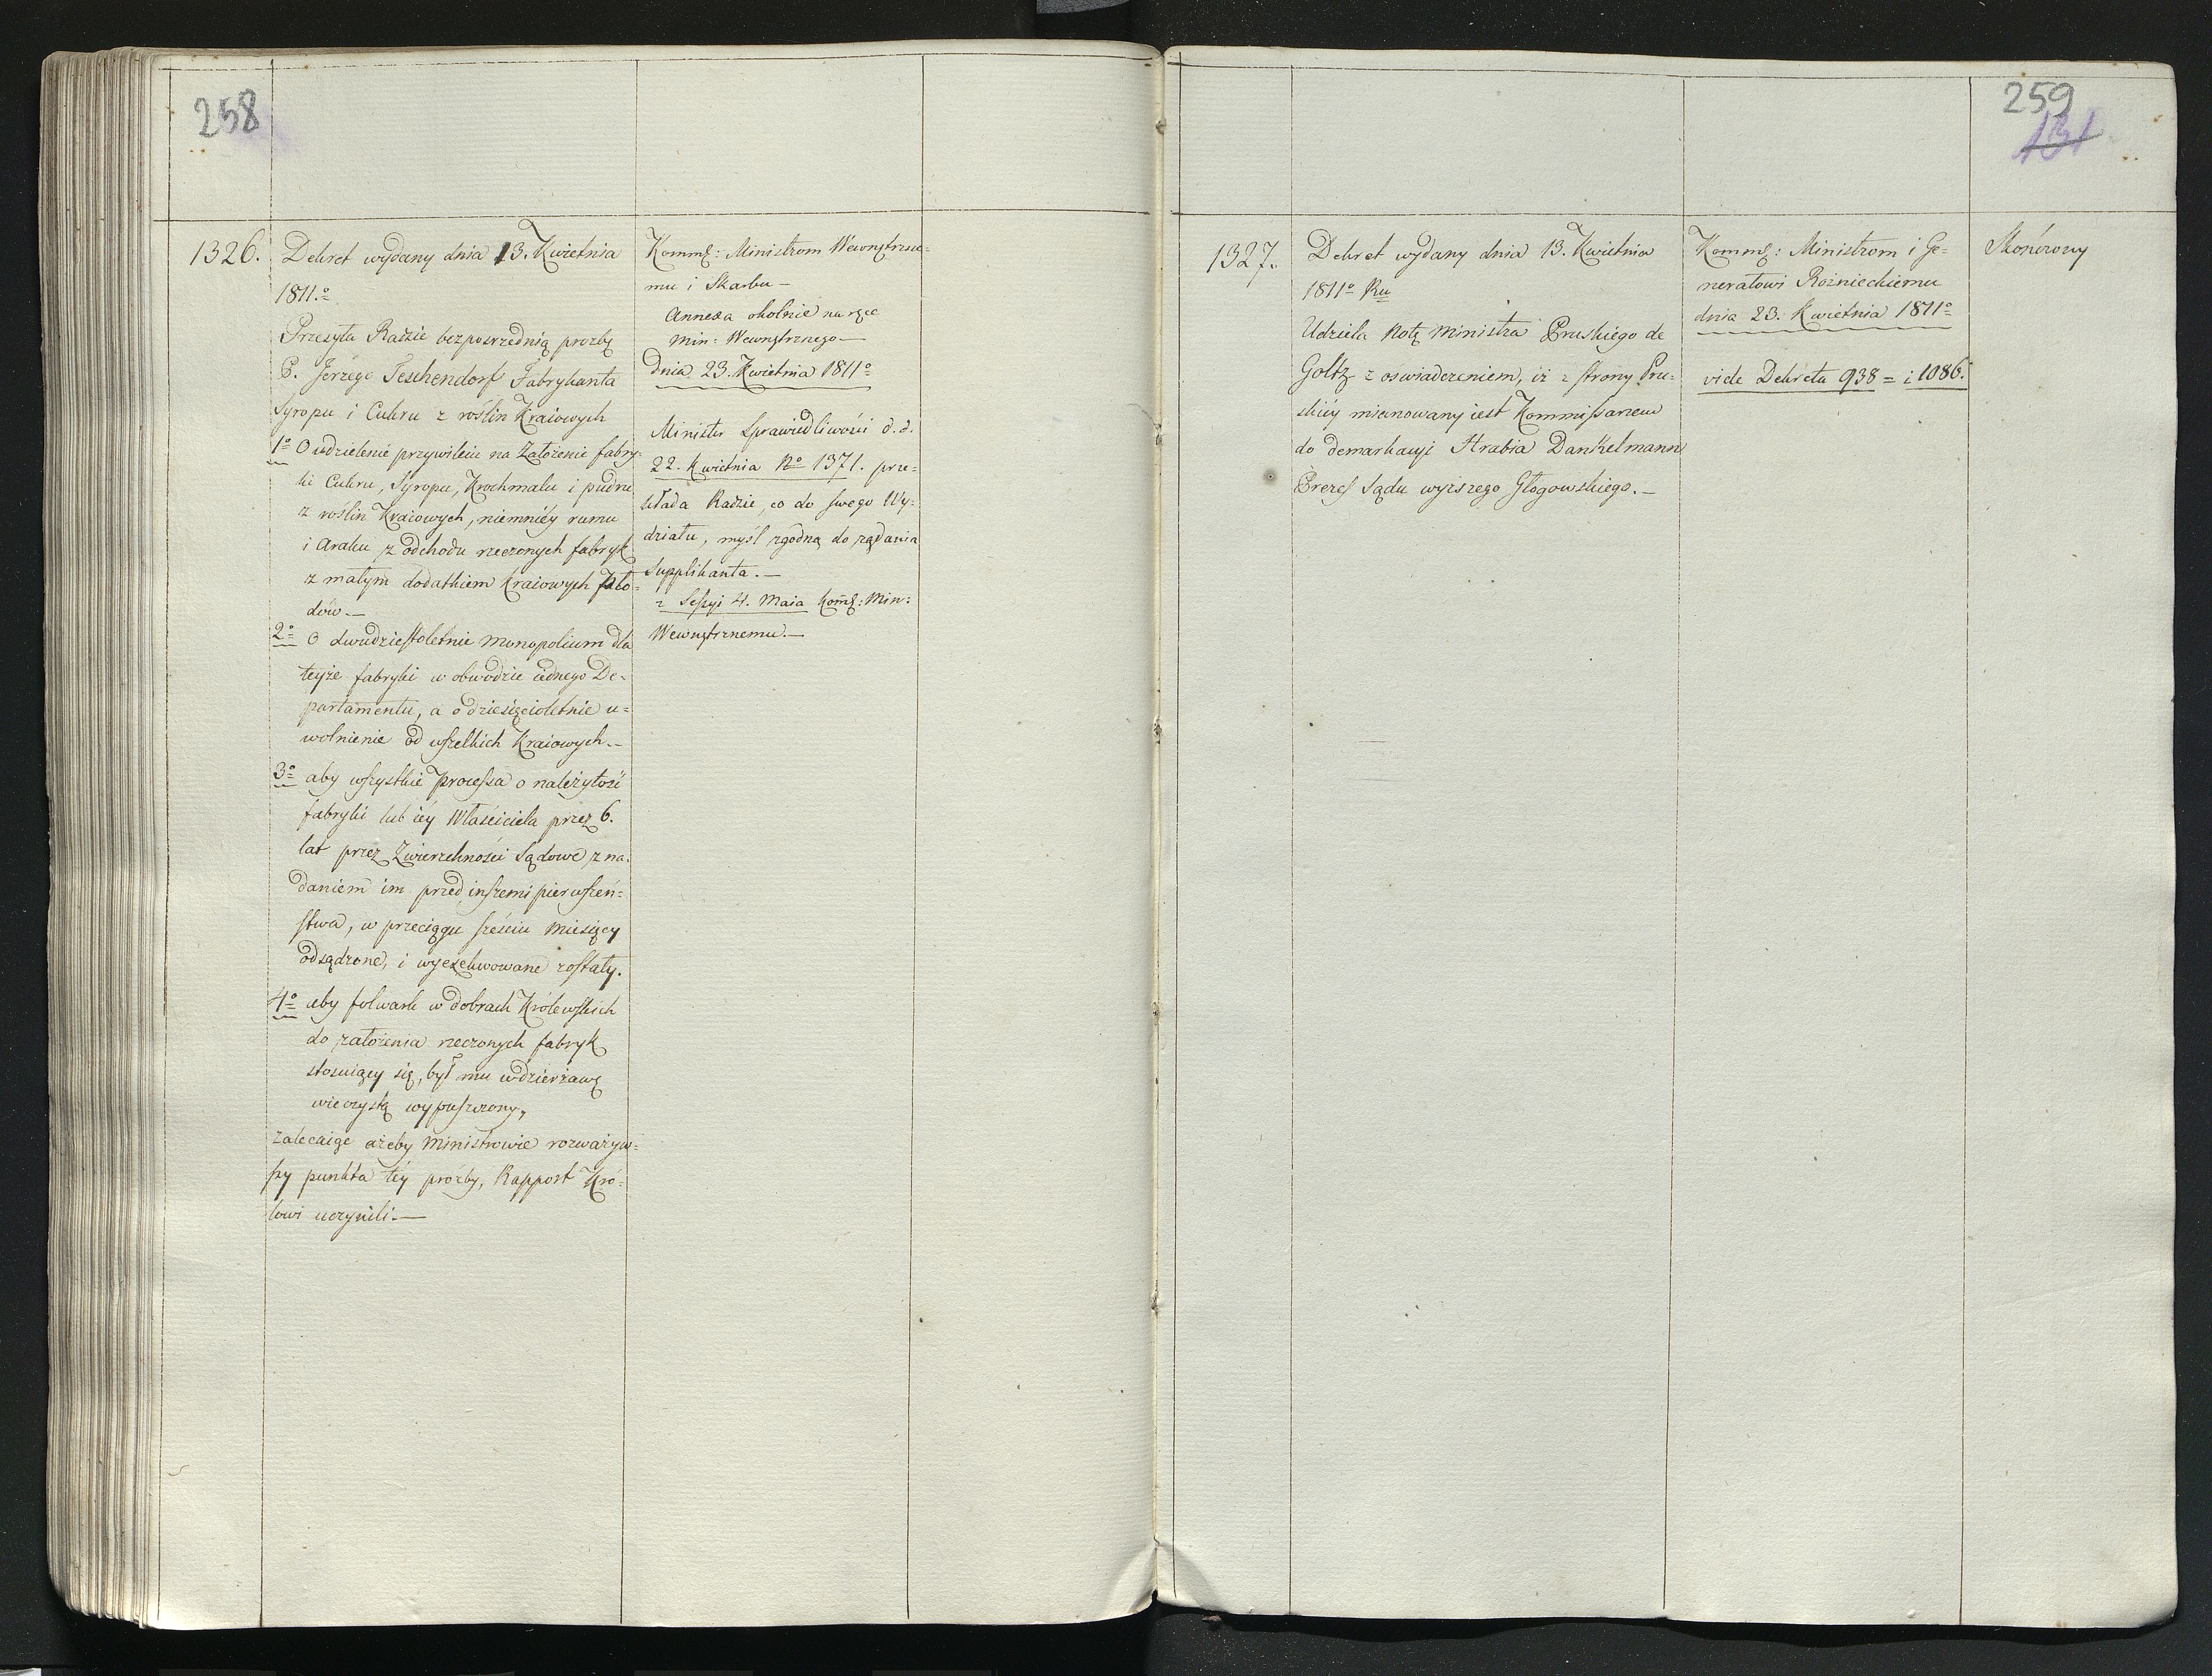 258
1326.
Dekret wydany dnia 13. Kwietnia
1811.º
Przesyła Radzie bezposrzednią prozbę
P. Jerzego Teschendorf Fabrykanta
Syropu i Cukru z roślin Kraiowych
1º O udzielenie przywileiu na Założenie fabry-
ki Cukru, Syropu, Krochmalu i pudru
z roślin Kraiowych, niemniéy rumu
i Araku z odchodu rzeczonych fabryk
z małym dodatkiem kraiowych Pło-
dów.—
2º O dwudziestoletnie monopolium dla
teyże fabryki w obwodzie iednego De-
partamentu, a o dziesięcioletnie u=
wolnienie od wszelkich Kraiowych.—
3º aby wszystkie Processa o należytość
fabryki lub iéy Właściciela przez 6.
lat przez Zwierzchności Sądowe z na-
daniem im przed inszemi pierwszeń=
stwa, w przeciągu sześciu miesięcy
odsądzone, i wyexekwowane zostały.
4º aby folwark w dobrach Królewskich
do założenia rzeczonych fabryk
stosuiący się, był mu w dzierżawę
wieczystą wypuszczony,
zalecaiąc ażeby Ministrowie rozważyw=
szy punkta téy prożby, Rapport Kró=
lowi uczynili.—
Kommę: Ministrom Wewnętrzne=
mu i Skarbu—
Annexa okolnie na ręce
Min: Wewnętrznego—
Dnia 23. Kwietnia 1811º
Minister Sprawiedliwości d.d.
22. Kwietnia Nº 1371. prze=
kłada Radzie, co do swego Wy-
działu, myśl zgodną do żądania
Supplikanta.—
z Sessyi 4. Maia Komę: Min:
Wewnętrznemu.—
259
131
1327.
Dekret wydany dnia 13. Kwietnia
1811º Ru
Udziela Notę Ministra Pruskiego de
Goltz z oswiadczeniem, iż z strony Pru-
skiéy mianowany iest Kommissarzem
do demarkacyi Hrabia Dankelmann
Prezes Sądu wyższego Głogowskiego.—
Kommę: Ministrom i Ge=
nerałowi Rożnieckiemu
dnia 23. Kwietnia 1811º
vide Dekreta 938 = i 1086.
Skończony